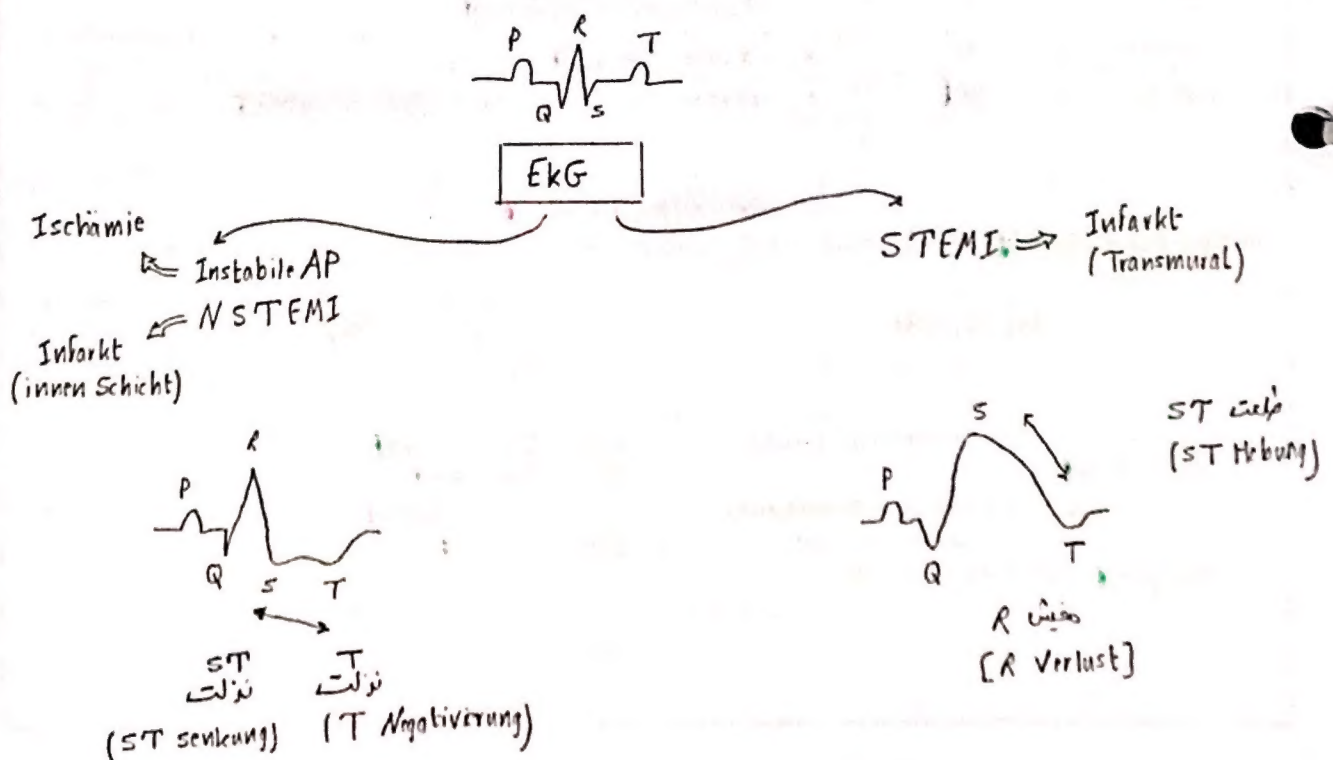 P R T
Q S
EKG
Ischämie
Instabile AP
NSTEMI
Infarkt
(innen Schicht)
STEMI
Infarkt
(Transmural)
R
P
Q S T
ST
نزلت
(ST senkung)
T
نزلت
(T Negativierung)
S
P
Q
T
ST طلعت
(ST Hebung)
R مفيش
[R Verlust]